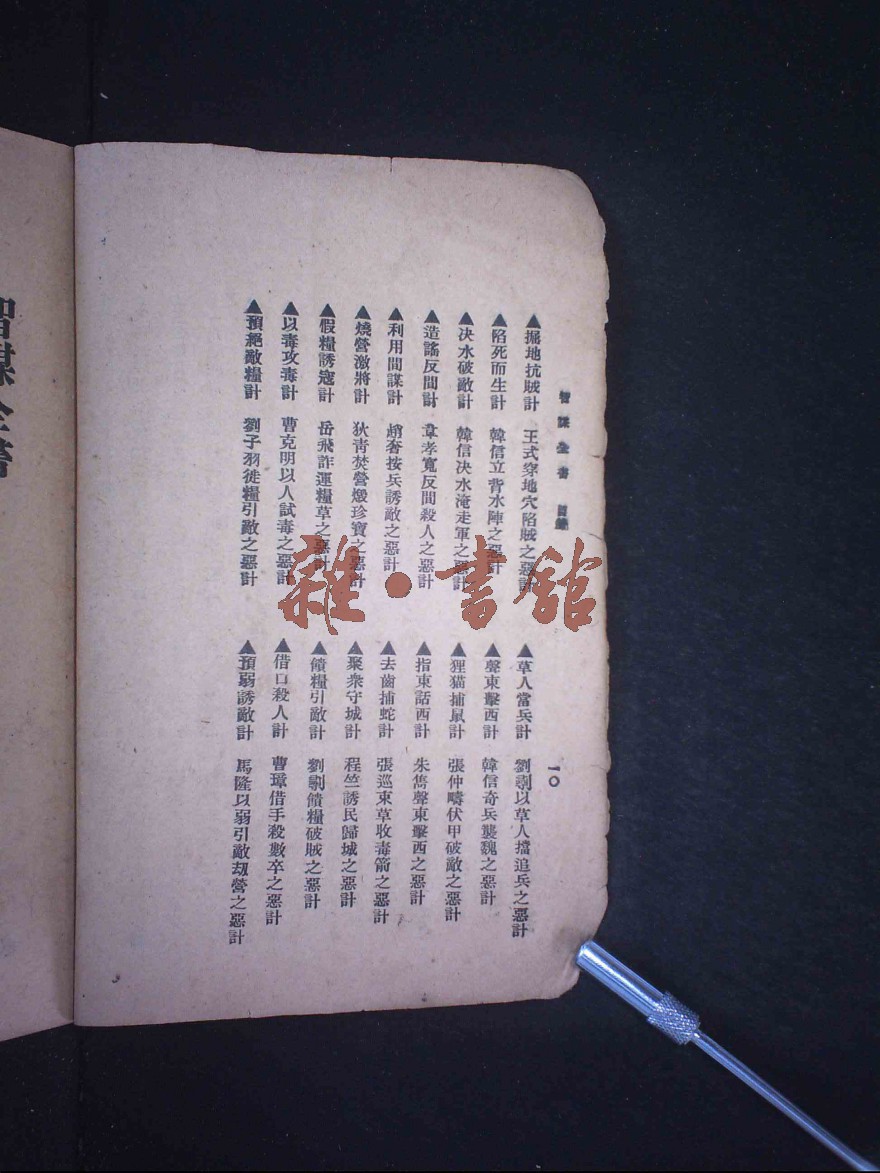 智謀全書 目錄 一〇
▲掘地抗賊計 王式穿地穴陷賊之惡計
▲陷死而生計 韓信立背水陣之惡計
▲决水破敵計 韓信决水淹走軍之惡計
▲造謠反間計 韋孝寬反間殺人之惡計
▲利用間諜計 趙奢按兵誘敵之惡計
▲燒營激將計 狄靑焚營燬珍寶之惡計
▲假糧誘寇計 岳飛詐運糧草之惡計
▲以毒攻毒計 曹克明以人試毒之惡計
▲預絕敵糧計 劉子羽徙糧引敵之惡計
▲草人當兵計 劉鄩以草人擋追兵之惡計
▲聲東擊西計 韓信奇兵襲魏之惡計
▲狸猫捕鼠計 張仲疇伏甲破敵之惡計
▲指東話西計 朱儁聲東擊西之惡計
▲去齒捕蛇計 張巡束草收毒箭之惡計
▲聚衆守城計 程竺誘民歸城之惡計
▲饋糧引敵計 劉饋糧破賊之惡計
▲借口殺人計 曹璋借手殺數卒之惡計
▲預弱誘敵計 馬隆以弱引敵刼營之惡計
智謀全書
雜·書館